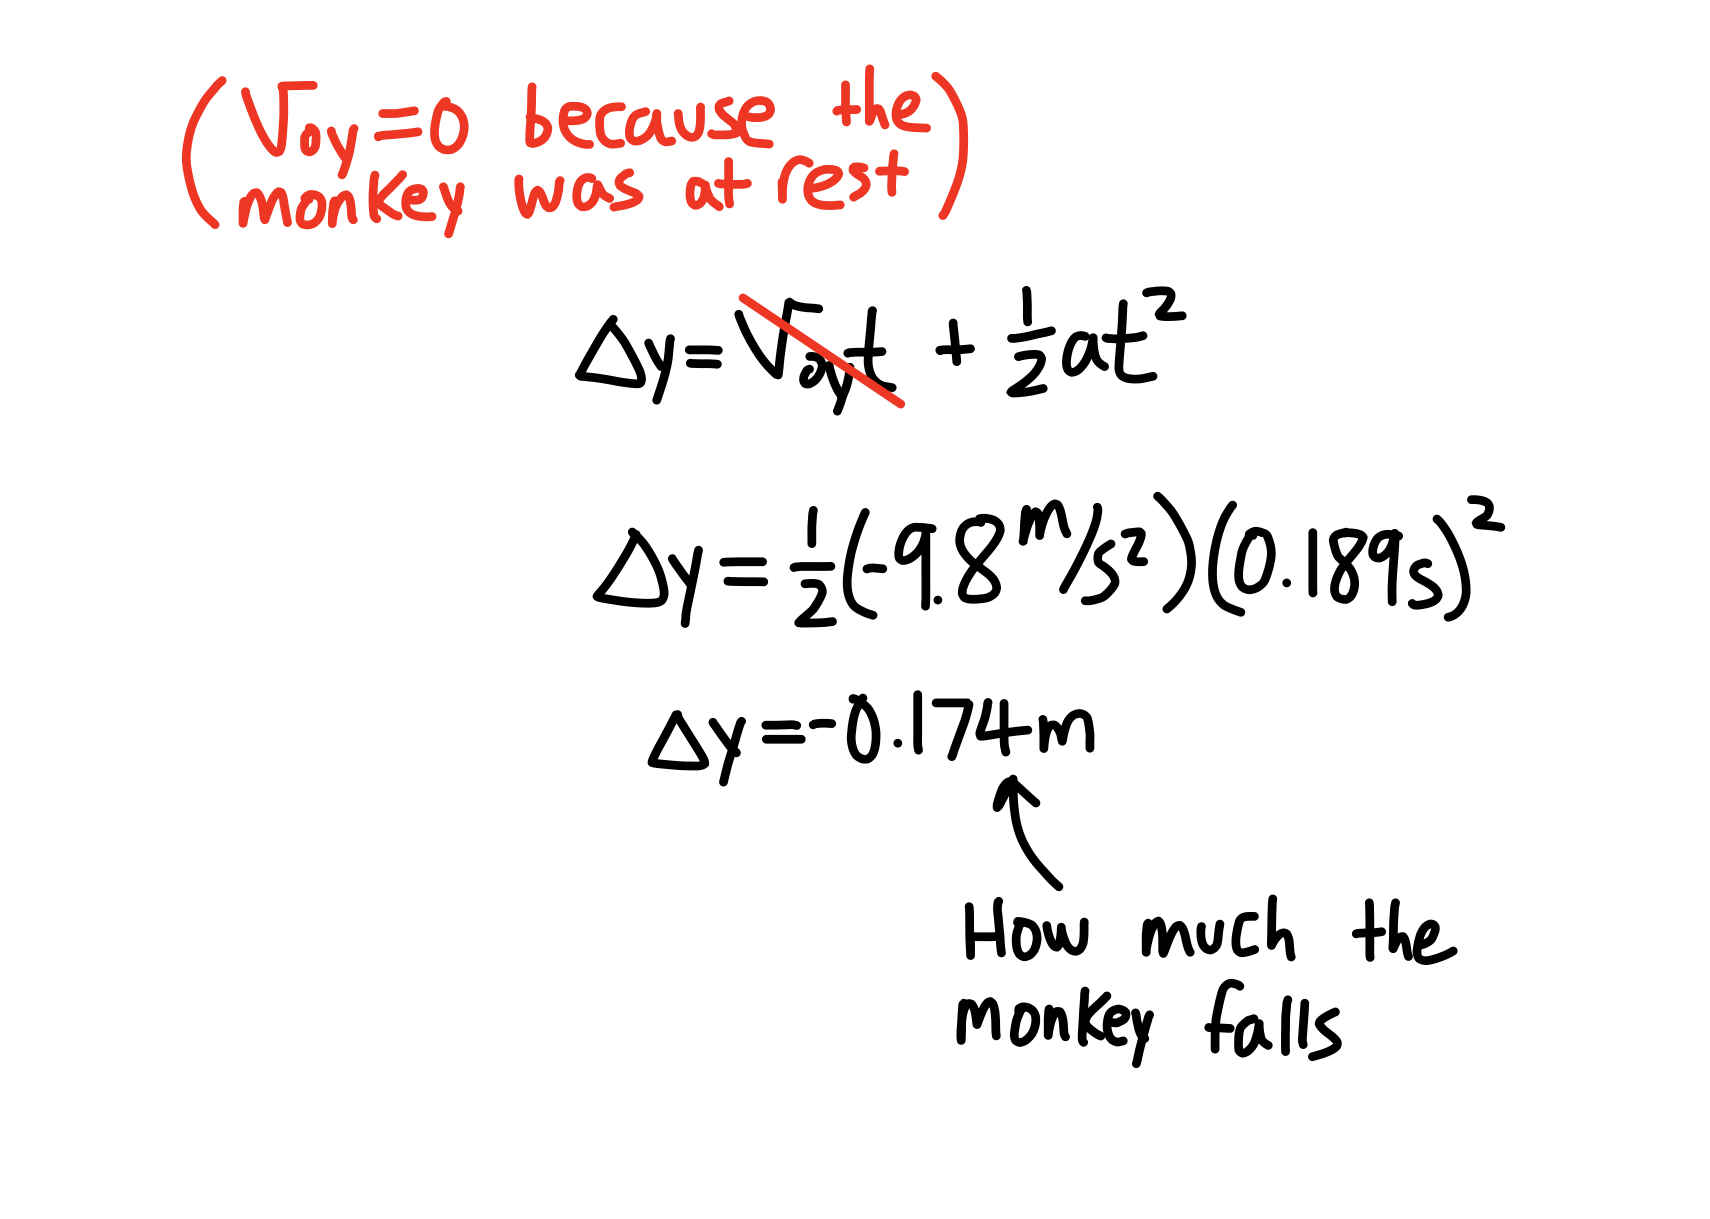 (V₀y=0 because the
monkey was at rest)
Δy=V₀yt + ½at²
Δy=½(-9.8m/s²)(0.189s)²
Δy=-0.174m
How much the
monkey falls